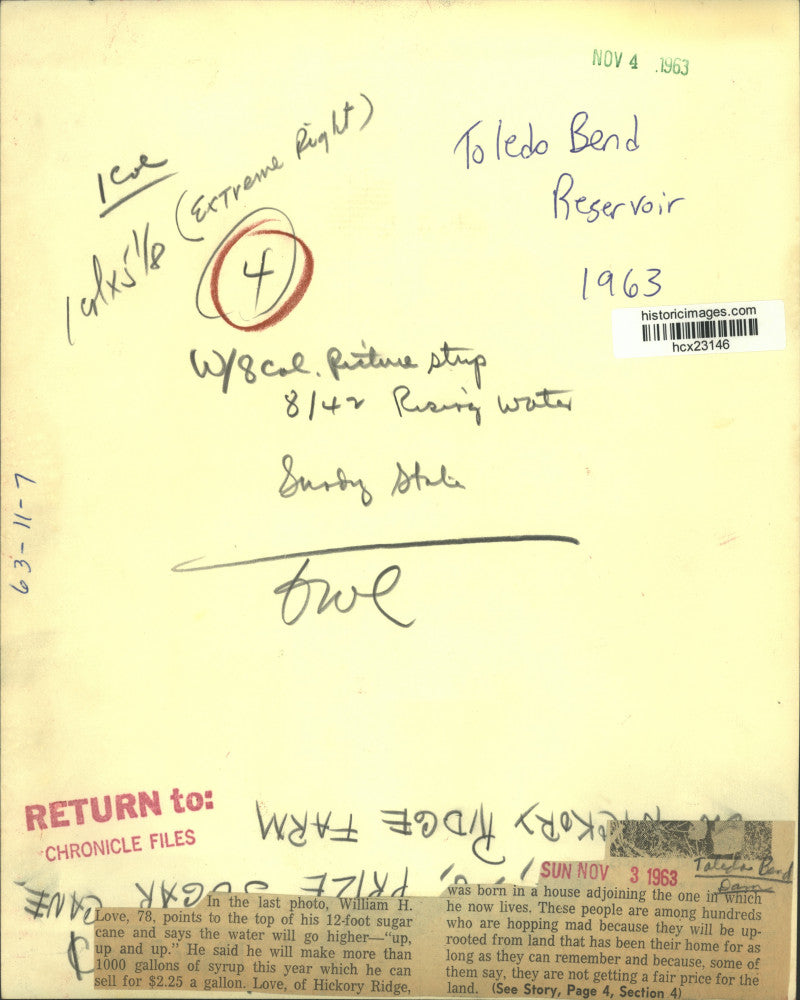 NOV 4 1963
Toledo Bend
Reservoir
1963
historicimages.com
hcx23146
1 col
1 col x 5 1/8 (Extreme Right)
4
W/8 col. Picture strip
8/42 Rising Water
Sundy State
63-11-7
RETURN to:
CHRONICLE FILES
HICKORY RIDGE FARM
PRIZE SUGAR CANE
SUN NOV 3 1963
Toledo Bend
Dam
In the last photo, William H.
Love, 78, points to the top of his 12-foot sugar
cane and says the water will go higher—“up,
up and up.” He said he will make more than
1000 gallons of syrup this year which he can
sell for $2.25 a gallon. Love, of Hickory Ridge,
was born in a house adjoining the one in which
he now lives. These people are among hundreds
who are hopping mad because they will be up-
rooted from land that has been their home for as
long as they can remember and because, some of
them say, they are not getting a fair price for the
land. (See Story, Page 4, Section 4)